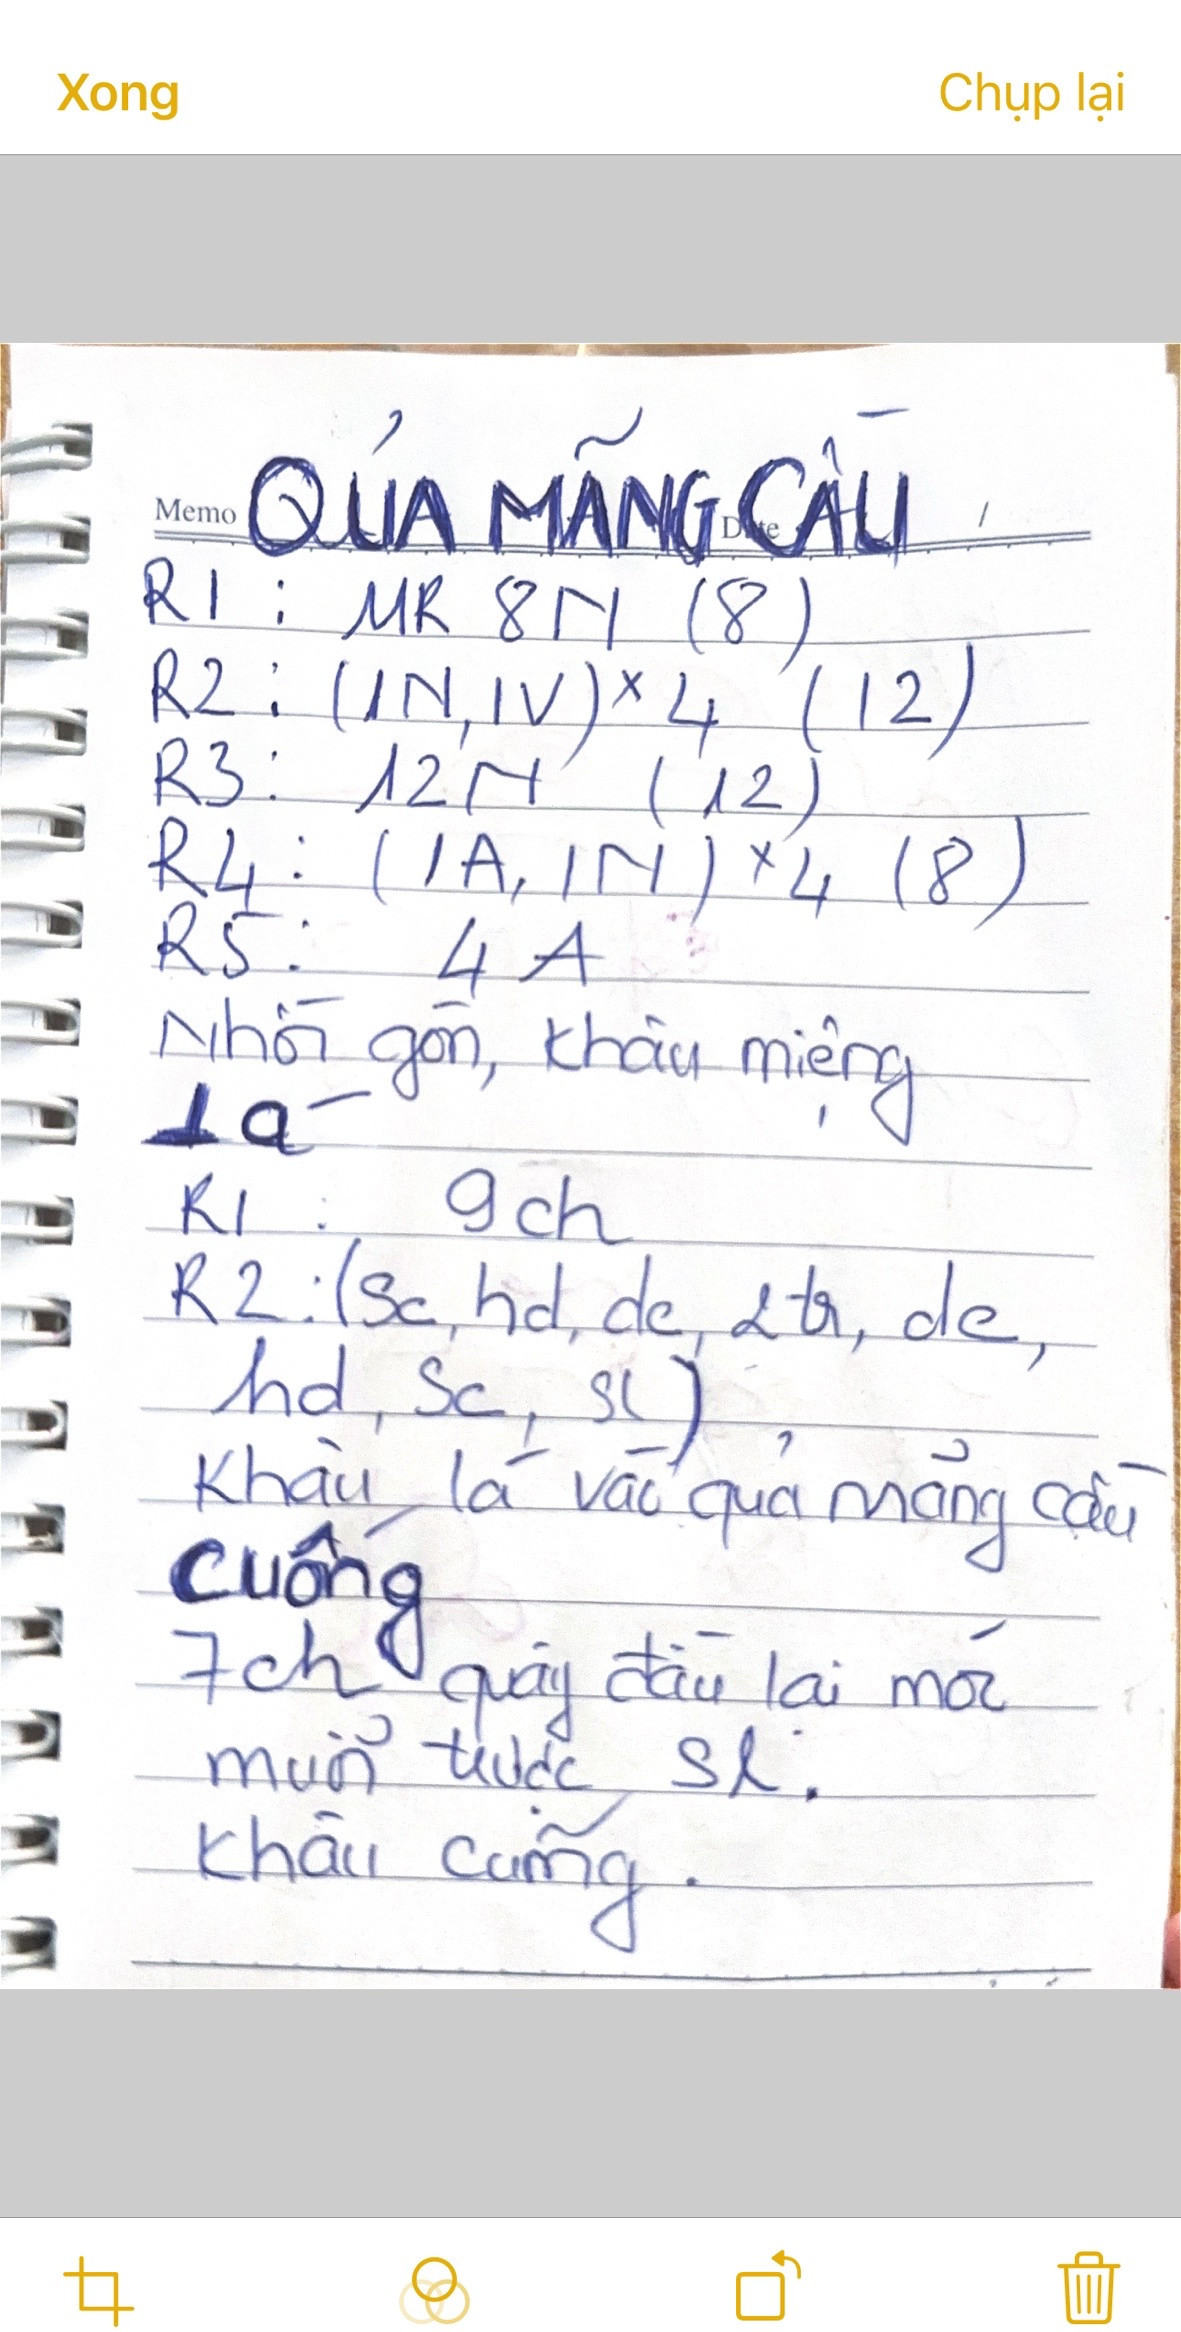 Xong
Chụp lại
Memo
Date
QUẢ MÃNG CẦU
R1 : MR 8N (8)
R2 : (1N, 1V) x 4 (12)
R3 : 12N (12)
R4 : (1A, 1N) x 4 (8)
R5 : 4A
Nhồi gòn, khâu miệng
Lá
R1 : 9ch
R2 : (Sc, hd, dc, 2tr, dc,
hd, Sc, sl)
Khâu lá vào quả mảng cầu
Cuống
7ch quay đầu lại móc
mũi trước sl.
khâu cuống.